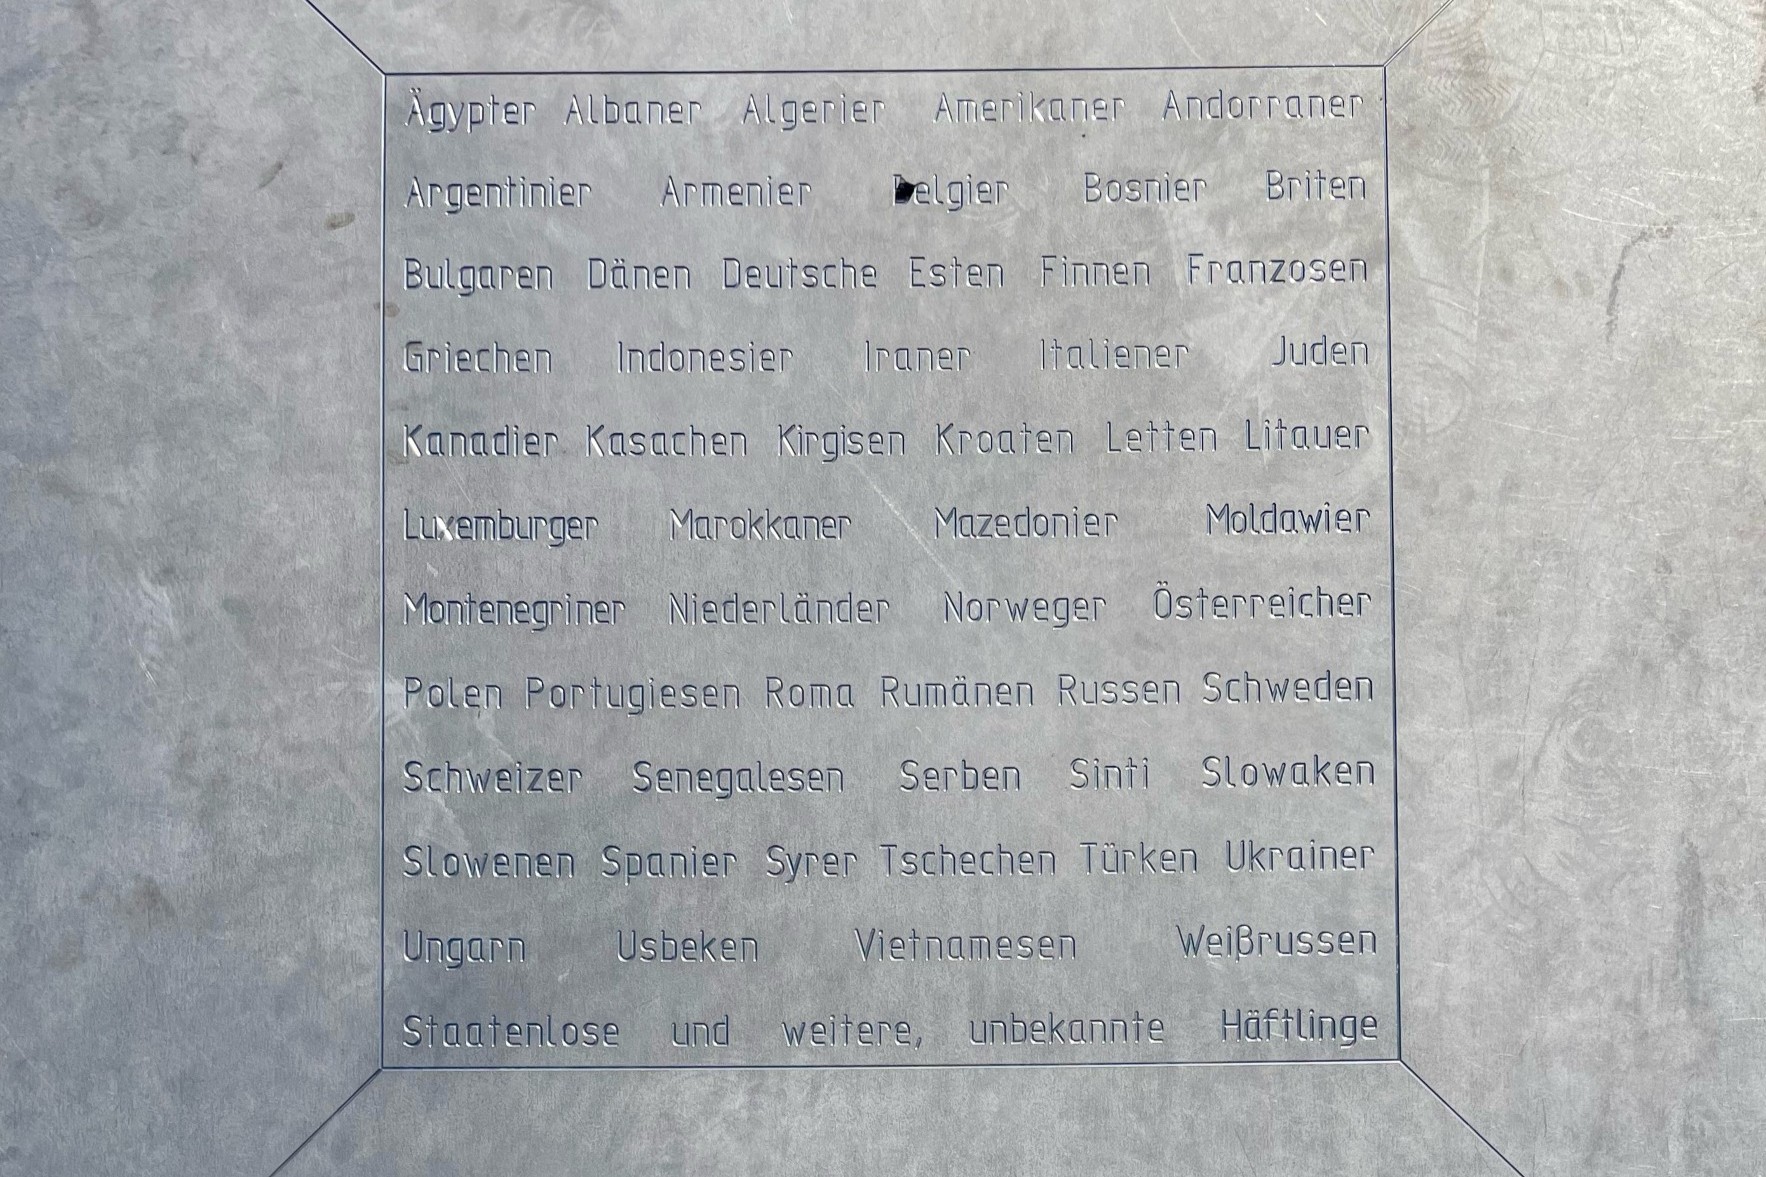 Ägypter Albaner Algerier Amerikaner Andorraner
Argentinier Armenier Belgier Bosnier Briten
Bulgaren Dänen Deutsche Esten Finnen Franzosen
Griechen Indonesier Iraner Italiener Juden
Kanadier Kasachen Kirgisen Kroaten Letten Litauer
Luxemburger Marokkaner Mazedonier Moldawier
Montenegriner Niederländer Norweger Österreicher
Polen Portugiesen Roma Rumänen Russen Schweden
Schweizer Senegalesen Serben Sinti Slowaken
Slowenen Spanier Syrer Tschechen Türken Ukrainer
Ungarn Usbeken Vietnamesen Weißrussen
Staatenlose und weitere, unbekannte Häftlinge